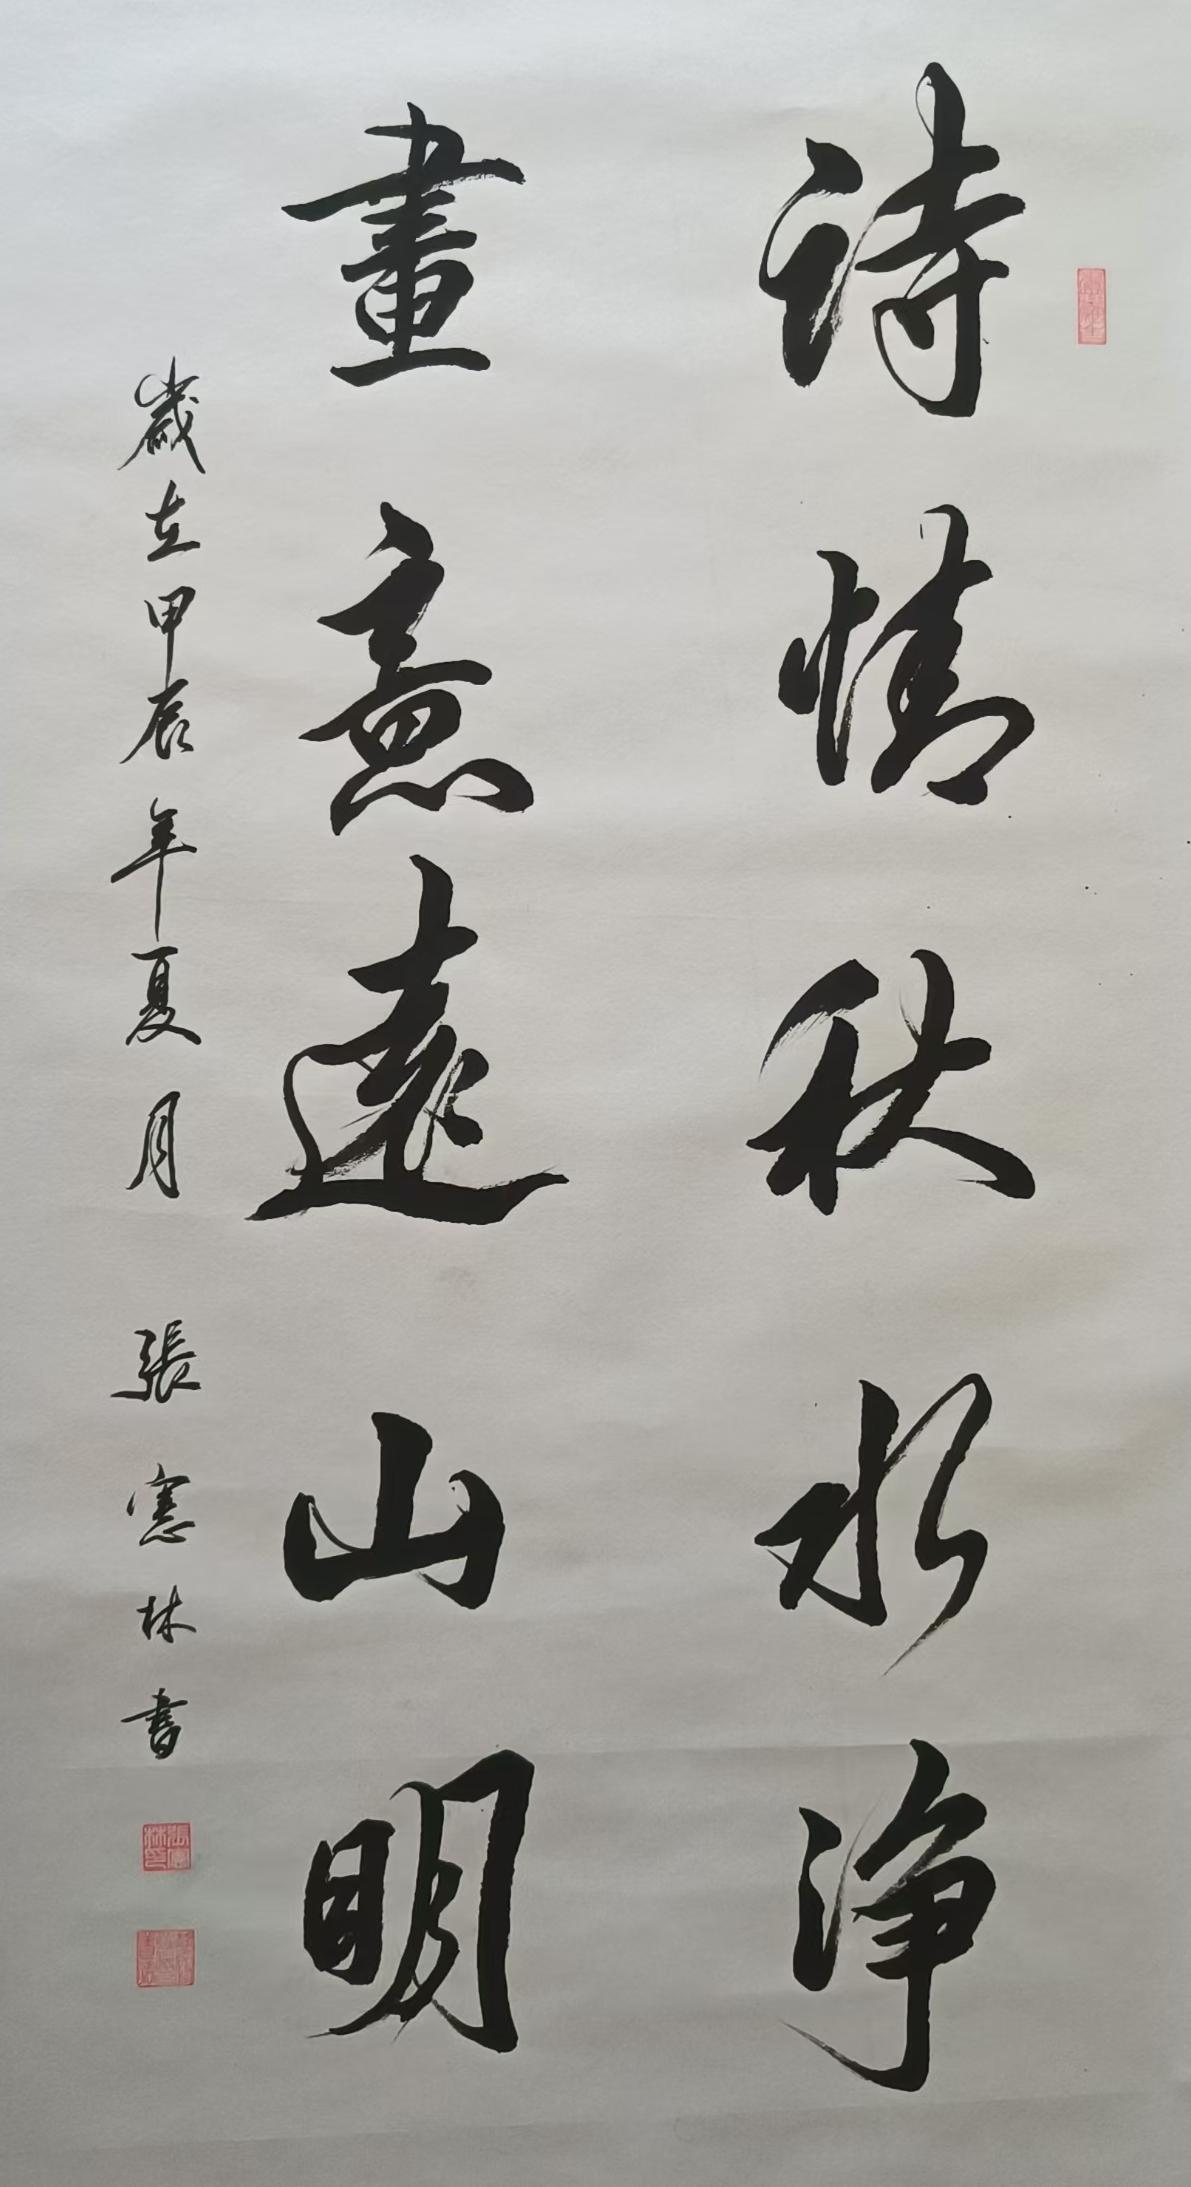 詩情秋水浄
畫意遠山明
歲在甲辰年夏月 張憲林書